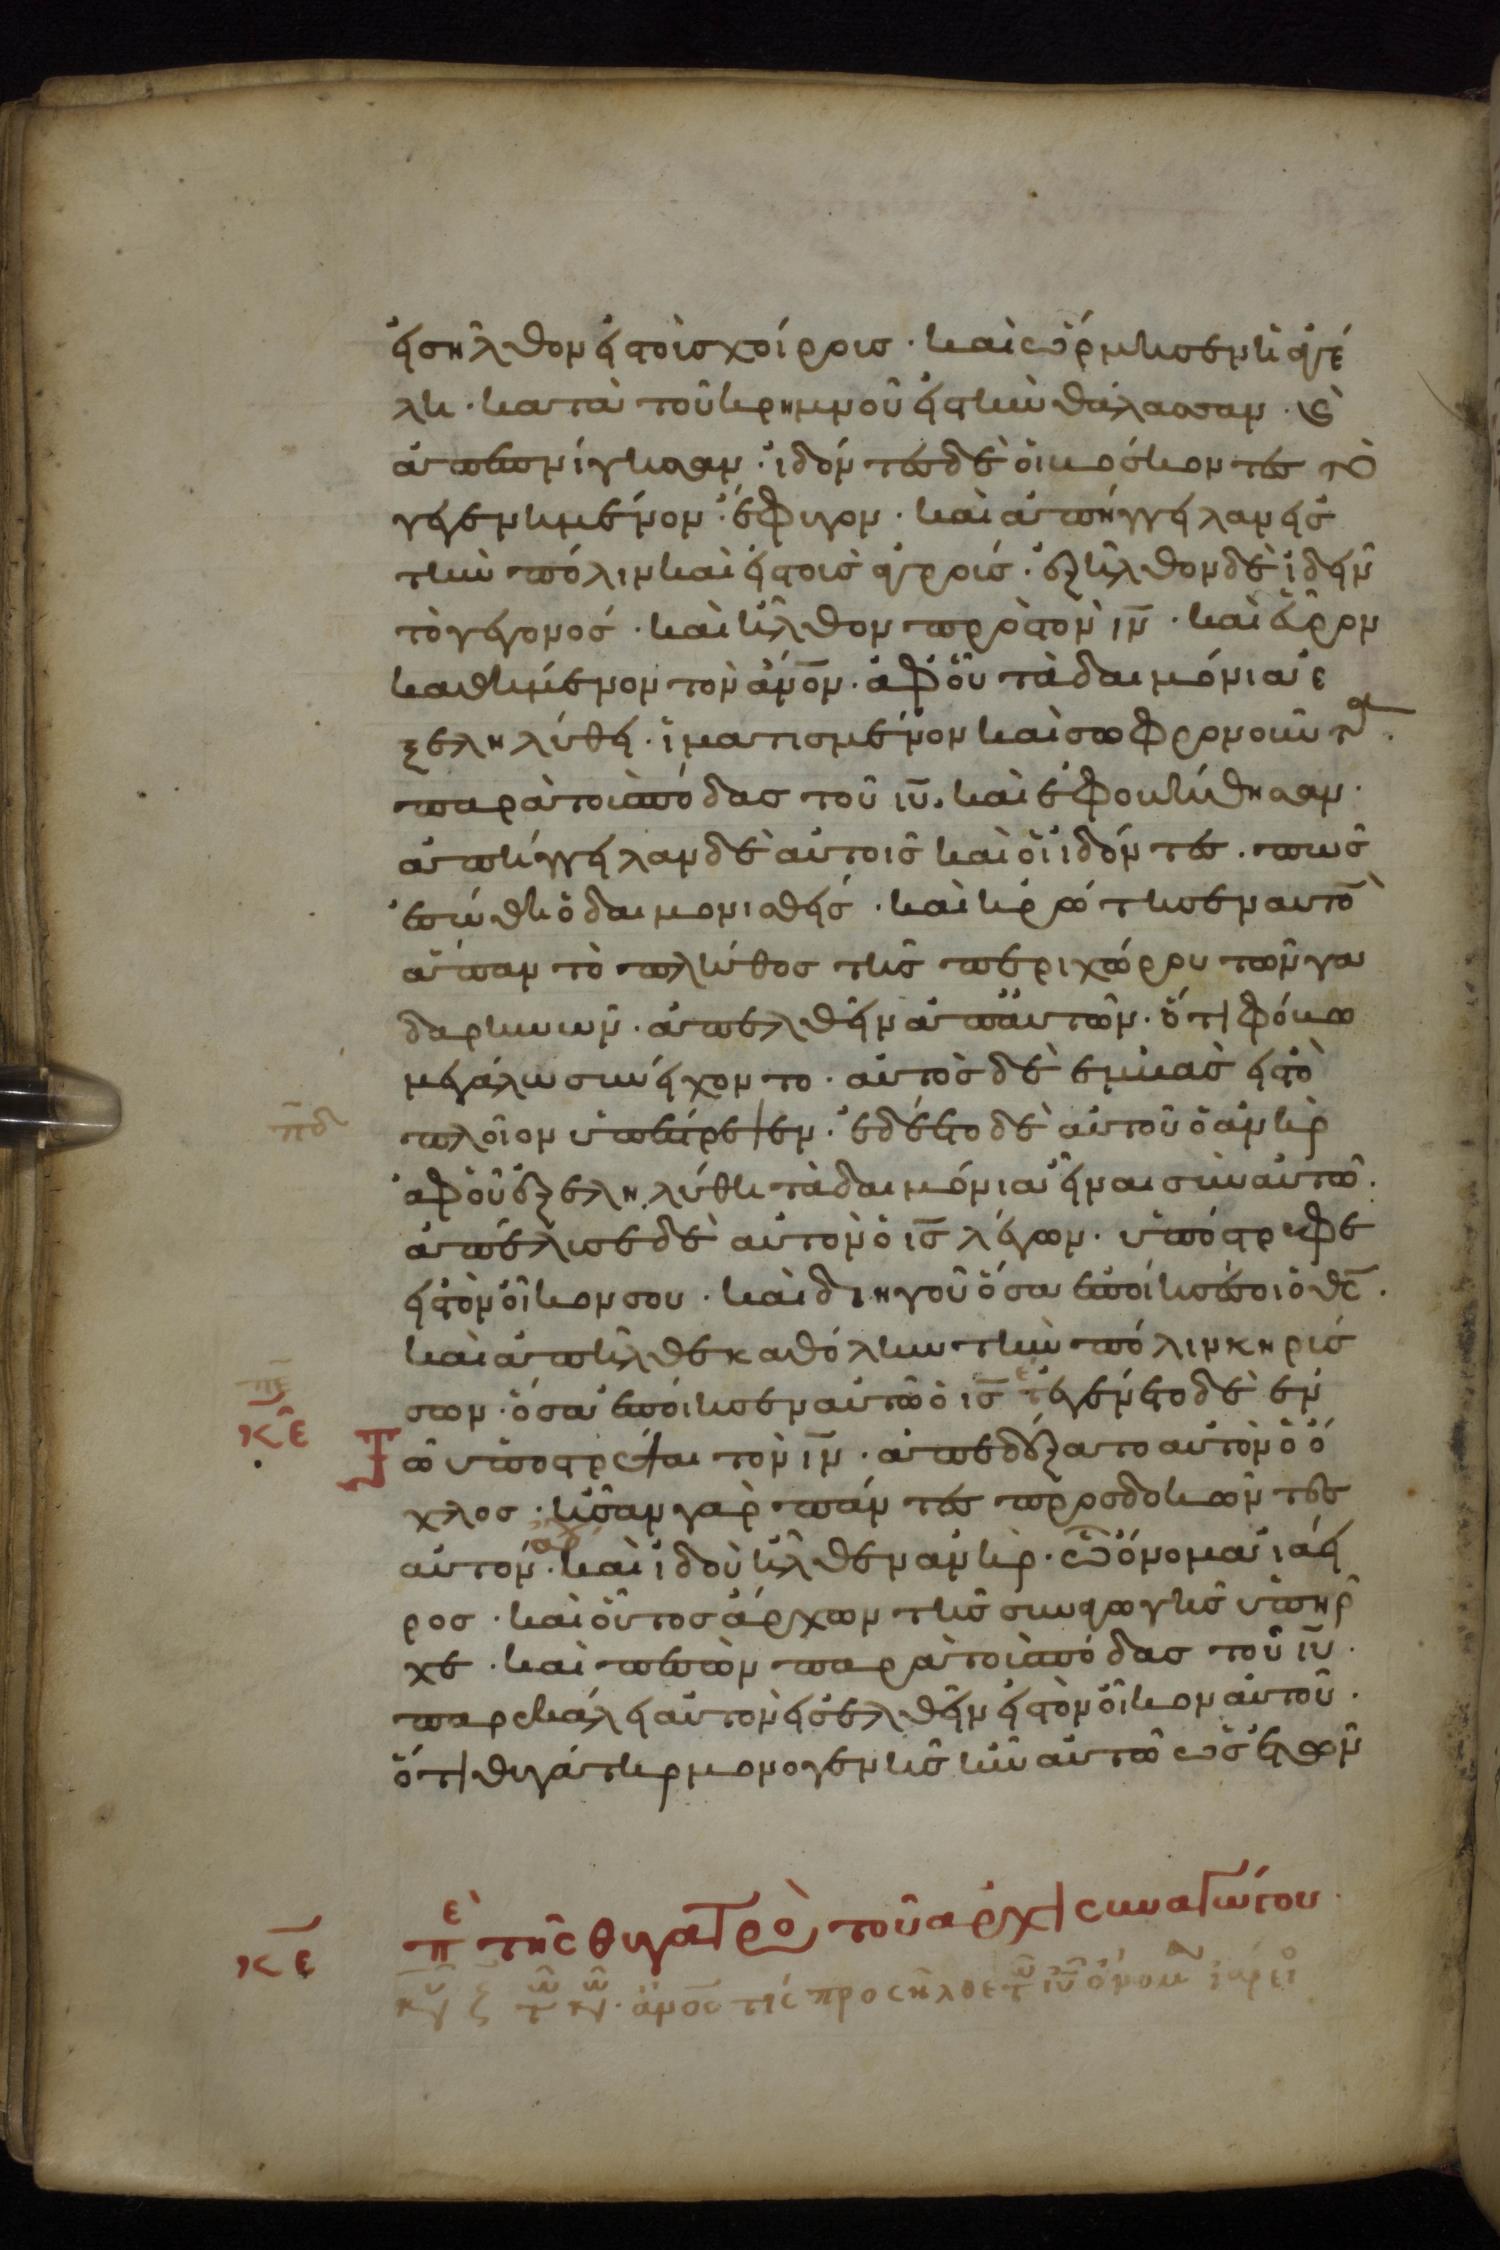 εἰσῆλθον εἰς τοὺς χοίρους · καὶ ὥρμησεν ἡ ἀγέ
λη · κατὰ τοῦ κρημνοῦ εἰς τὴν θάλασσαν · καὶ
ἀπεπνίγησαν · ἰδόντες δὲ οἱ βόσκοντες τὸ
γεγενημένον · ἔφυγον · καὶ ἀπήγγειλαν εἰς
τὴν πόλιν καὶ εἰς τοὺς ἀγρούς · ἐξῆλθον δὲ ἰδεῖν
τὸ γεγονός · καὶ ἦλθον πρὸς τὸν ιν · καὶ εὗρον
καθήμενον τὸν ανον · ἀφ οὗ τὰ δαιμόνια ἐ
ξεληλύθει · ἱματισμένον καὶ σωφρονοῦντα ·
παρὰ τοὺς πόδας τοῦ ιυ · καὶ ἐφοβήθησαν ·
ἀπήγγειλαν δὲ αὐτοῖς καὶ οἱ ἰδόντες · πῶς
ἐσώθη ὁ δαιμονισθείς · καὶ ἠρώτησεν αὐτὸ
ἅπαν τὸ πλῆθος τῆς περιχώρου τῶν γα
δαρηνῶν · ἀπελθεῖν ἀπ αὐτῶν · ὅτι φόβω
μεγάλω συνείχοντο · αὐτὸς δὲ ἐμβὰς εἰς τὸ
πλοῖον ὑπέστρεψεν · ἐδέετο δὲ αὐτοῦ ὁ ἀνὴρ
ἀφ οὗ ἐξεληλύθει τὰ δαιμόνια εἶναι σὺν αὐτῶ ·
ἀπέλυσε δὲ αὐτὸν ὁ ις λέγων · ὑπόστρεφε
εἰς τὸν οἶκον σου · καὶ διηγοῦ ὅσα ἐποίησέ σοι ὁ θς ·
καὶ ἀπῆλθε καθ ὅλην τὴν πόλιν κηρύσ
σων · ὅσα ἐποίησεν αὐτῶ ὁ ις ἐγένετο δὲ ἐν
τῶ ὑποστρέψαι τὸν ιν · ἀπεδέξατο αὐτὸν ὁ ὄ
χλος · ἦσαν γὰρ πάντες προσδοκῶντες
αὐτόν · καὶ ἰδοὺ ἦλθεν ἀνὴρ · ὧ ὄνομα ἰάει
ρος · καὶ οὗτος ἄρχων τῆς συναγωγῆς ὑπῆρ
χε · καὶ πεσὼν παρὰ τοὺς πόδας τοῦ ιυ ·
παρεκάλει αὐτὸν εἰσελθεῖν εἰς τὸν οἶκον αὐτοῦ ·
ὅτι θυγάτηρ μονογενὴς ἦν αὐτῶ ὡς ἐτῶν
πδ
πε
κε
αρχ
κε πε τῆς θυγατρὸς τοῦ ἀρχισυναγώγου
ανος τίς προσῆλθε τῶ ιυ ὄνομα ἰάρει